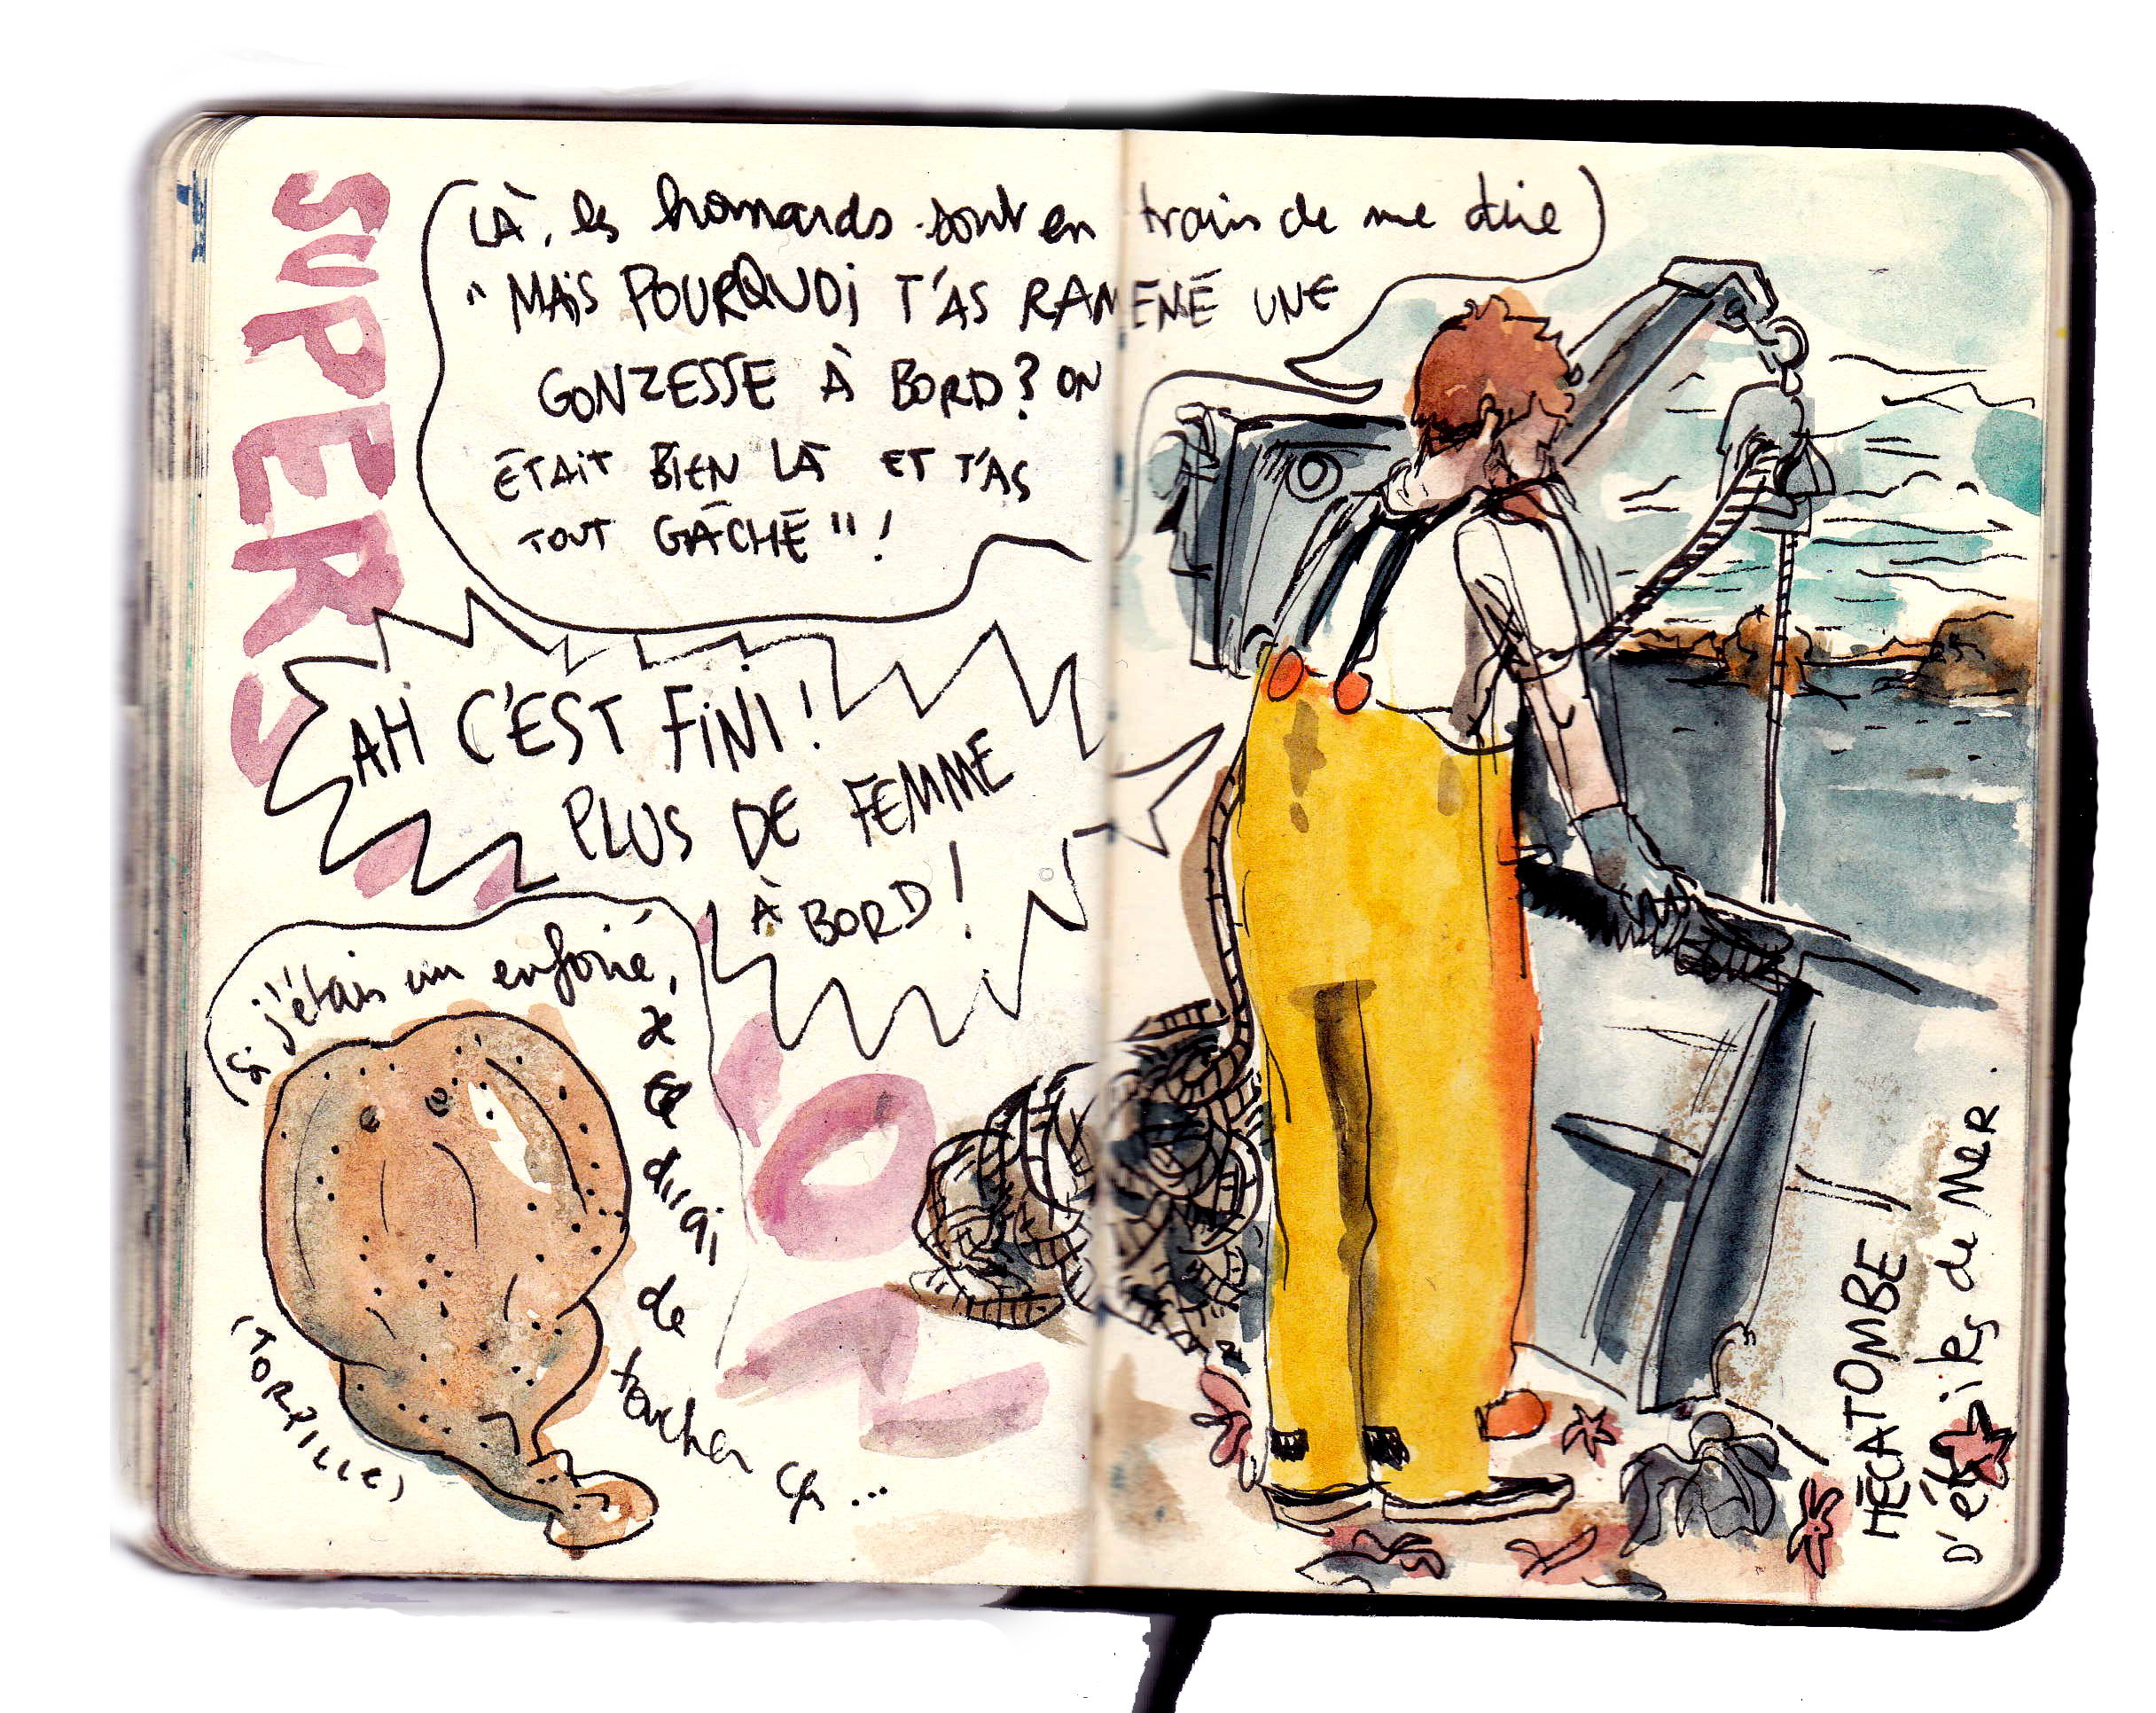 SUPERS
LÀ, les homards sont en train de me dire
"MAIS POURQUOI T'AS RAMENÉ UNE
GONZESSE À BORD? ON
ÉTAIT BIEN LÀ ET T'AS
TOUT GÂCHÉ"!
AH C'EST FINI!
PLUS DE FEMME
À BORD!
Si j'étais un enfoiré,
je
te
dirai
de
toucher ça...
(TORPILLE)
ON
HÉCATOMBE
D'étoiles de MER.